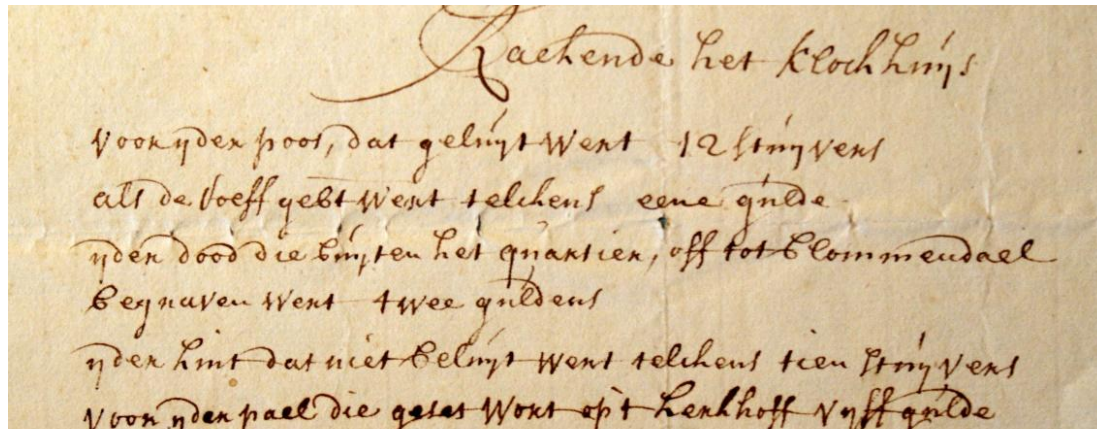 Rackende het klockhuijs
voor yder poos, dat geluyt wert 12 stuyvers
als de roeff gebt wert telckens eene gulde
yder dood die buyten het quartier, off tot Blommendael
begraven wert twee guldens
yder kint dat niet beluyt wert telckens tien stuyvers
voor yder pael die geset wort op't kerkhoff vyff gulde